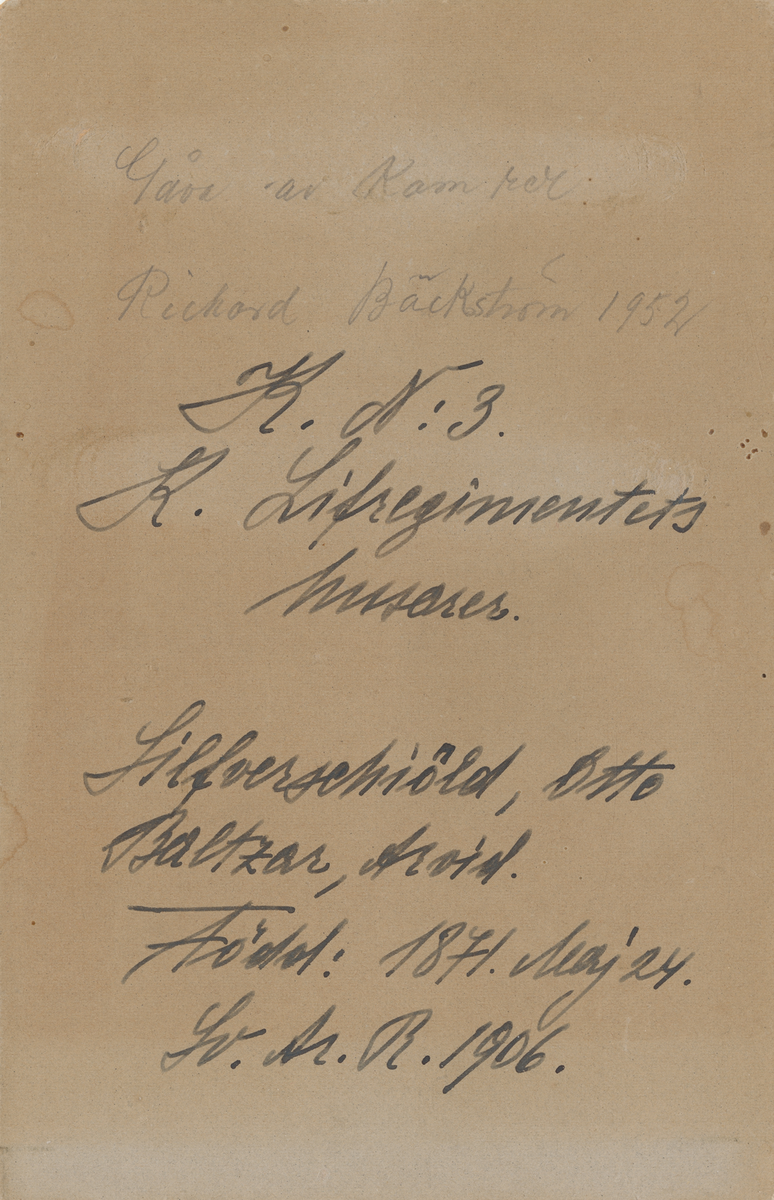 Gåva av Kamrer
Richard Bäckström 1952
K. N:3.
K. Lifregimentets
husarer.
Silfverschiöld, Otto
Baltzar, Arvid.
Född: 1871. Maj 24.
Sv. Ar. R. 1906.